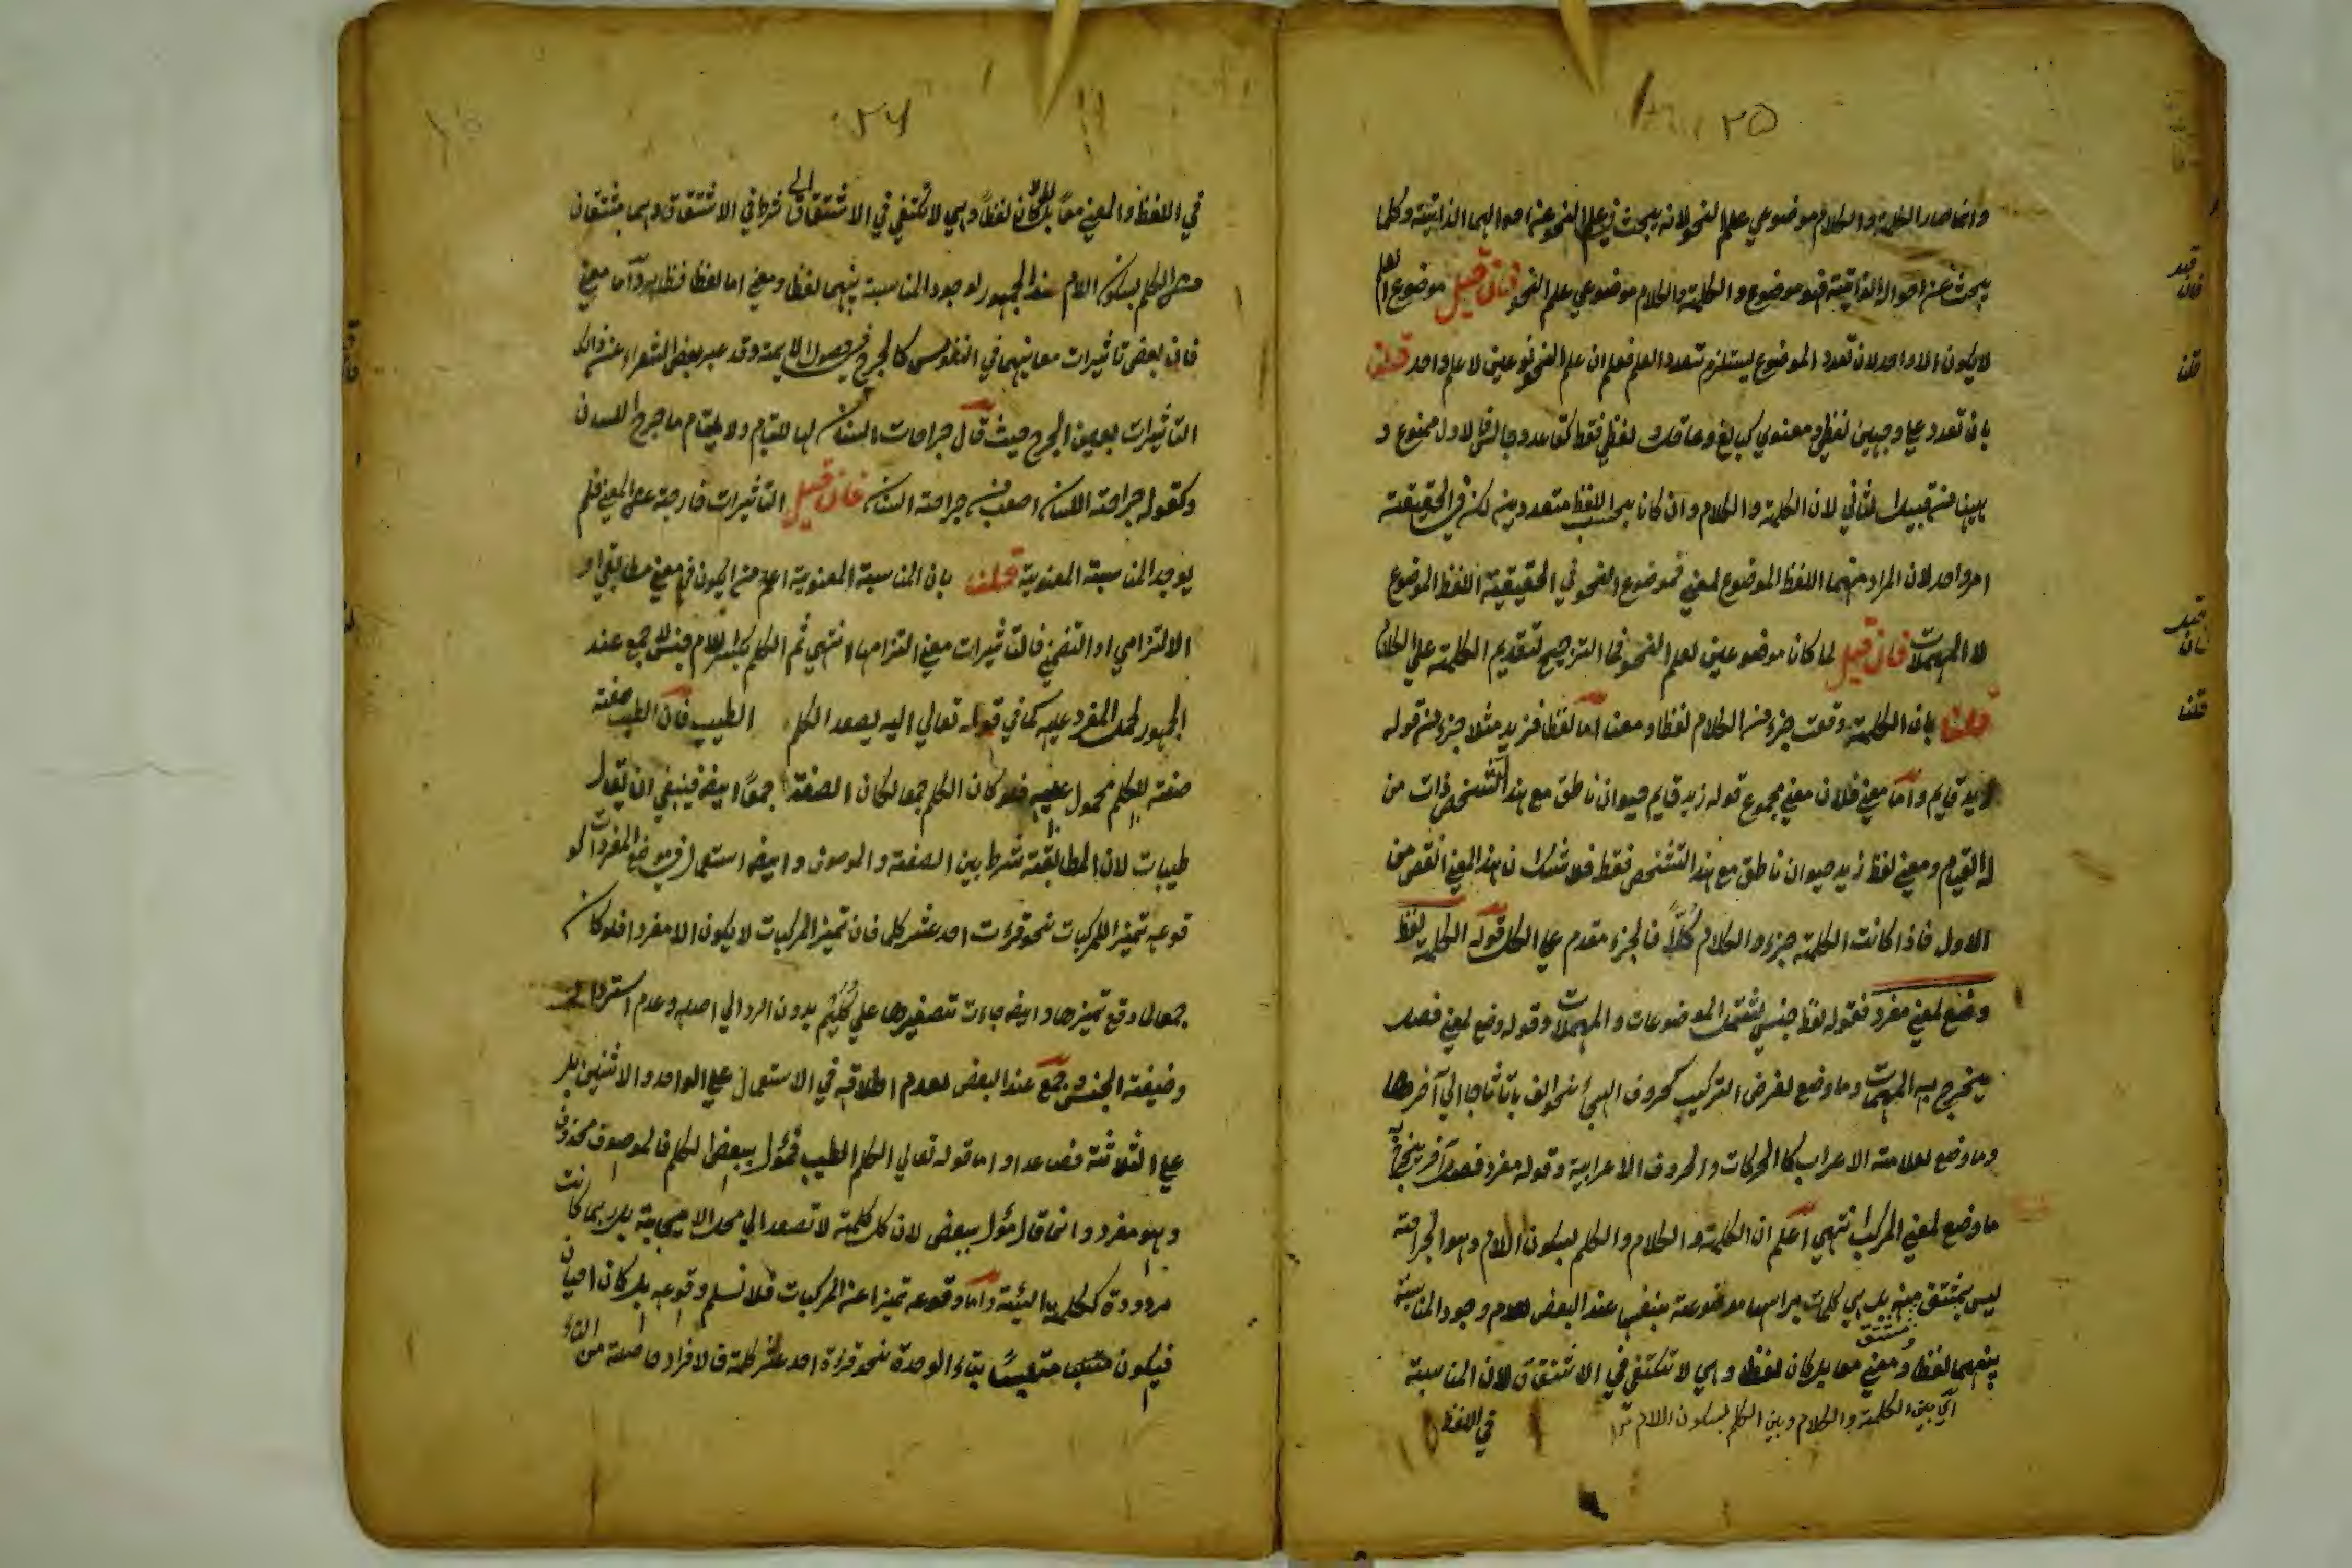 ٢٥
وانما صار الكلمة والكلام موضوعي علم النحو لانه يبحث في علم النحو عن احوالهما الذاتية وكلما
يبحث عن احواله الذاتية فهو موضوع والكلمة والكلام موضوعي علم النحو فان قيل موضوع العلم
لا يكون الا واحد لان تعدد الموضوع يستلزم تعدد العلم فعلم ان علم النحو نوعين لا علم واحد قلنا
بان تعدد علي وجهين لفظي ومعنوي ولفظي فقط كقاعد وجالس فالاول ممنوع و
ههنا من قبيل الثاني لان الكلمة والكلام وان كانا بحسب اللفظ متعددين لكن في الحقيقة
امر واحد لان المراد منهما اللفظ الموضوع لمعني فموضوع النحو في الحقيقة اللفظ الموضوع
لا المهملات فان قيل لما كانا موضوعين لعلم النحو فما الترجيح لتقديم الكلمة علي الكلام
قلنا بان الكلمة وقعت جزء من الكلام لفظا ومعنا اما لفظا فزيد مثلا جزء من قوله
زيد قايم واما معني فلان معني مجموع قوله زيد قايم حيوان ناطق مع هذا التشخص ذات من
له القيام ومعني لفظ زيد حيوان ناطق مع هذا التشخص فقط فلا شك ان هذا المعني انقص من
الاول فاذا كانت الكلمة جزء والكلام كلاً فالجزء مقدم علي الكل قوله الكلمة لفظ
وضع لمعني مفرد فقوله لفظ جنس يشتمل الموضوعات والمهملات وقوله وضع لمعني فصل
يخرج به المهملات وما وضع لغرض التركيب كحروف الهجي نحو الف با تا ثا جا الي آخرها
وما وضع لعلامة الاعراب كالحركات والحروف الاعرابية وقوله مفرد فصل آخر يخرج
ما وضع لمعني المركب انتهي اعلم ان الكلمة والكلام والكلم بسكون اللام وهو الجراحة
ليس بمشتق منه بل هي كلمات براسها موضوعة بنفسها عند البعض لعدم وجود المناسبة
بينهما لفظا ومعني معا بل كان لفظا وهي لا تكتفي في الاشتقاق لان المناسبة
مشتق
اي بين الكلمة والكلام وبين الكلم بسكون اللام
في اللفظ
فان قيل
قلنا
فان قيل
قلنا
٢٦
في اللفظ والمعني معاً بل كان لفظاً وهي لا تكتفي في الاشتقاق شرط في الاشتقاق وهما مشتقان
من الكلم بسكون اللام عند الجمهور لوجود المناسبة بينهما لفظا ومعني اما لفظا فظاهر واما معني
فان بعض تاثيرات معانيهما في النفوس كالجرح في حصول الالم وقد عبر بعض الشعراء عن ذالك
التاثيرات بعين الجرح حيث قال جراحات السنان لها التيام ولا يلتام ما جرح اللسان
وكقوله جراحة اللسان اصعب من جراحة السنان فان قيل التاثيرات خارجة عن المعني فلم
يوجد المناسبة المعنوية قلنا بان المناسبة المعنوية اعم من ان يكون في معني مطابقي او
الالتزامي او التضمني فالتاثيرات معني التزامها انتهي ثم الكلم بكسر اللام جنس لا جمع عند
الجمهور لحمل المفرد عليه كما في قوله تعالي اليه يصعد الكلم الطيب فان الطيب صفة
صفة للكلم محمول عليه فلو كان الكلم جمعا لكان الصفة جمعاً ايضا فينبغي ان يقال
طيبات لان المطابقة شرط بين الصفة والموصوف وايضا استعمال في موضع المفردات لو
قوعه تميز المركبات نحو قرءت احد عشر كلما فان تميز المركبات لا يكون الا مفردا فلو كان
جمعا لما وقع تميزها وايضا جاءت تصغيرها علي كُلَيْم بدون الرد الي اصله وعدم
وضيفة الجنس وجمع عند البعض لعدم اطلاقه في الاستعمال علي الواحد والاثنين بل
علي الثلاثة فصاعدا واما قوله تعالي الكلم الطيب فمؤل ببعض الكلم فالموصوف محذوف
وهو مفرد وانما قال مؤل ببعض لان كل كلمة لا تصعد الي محل الاجابة بل ربما كانت
مردودة ككلمة السيئة واما وقوعه تميزا عن المركبات فلا نسلم وقوعه بل كان احيان
فيكون متعيناً بتاء الوحدة نحو قرءة احد عشر كلمة فالافراد حاصلة من التاء